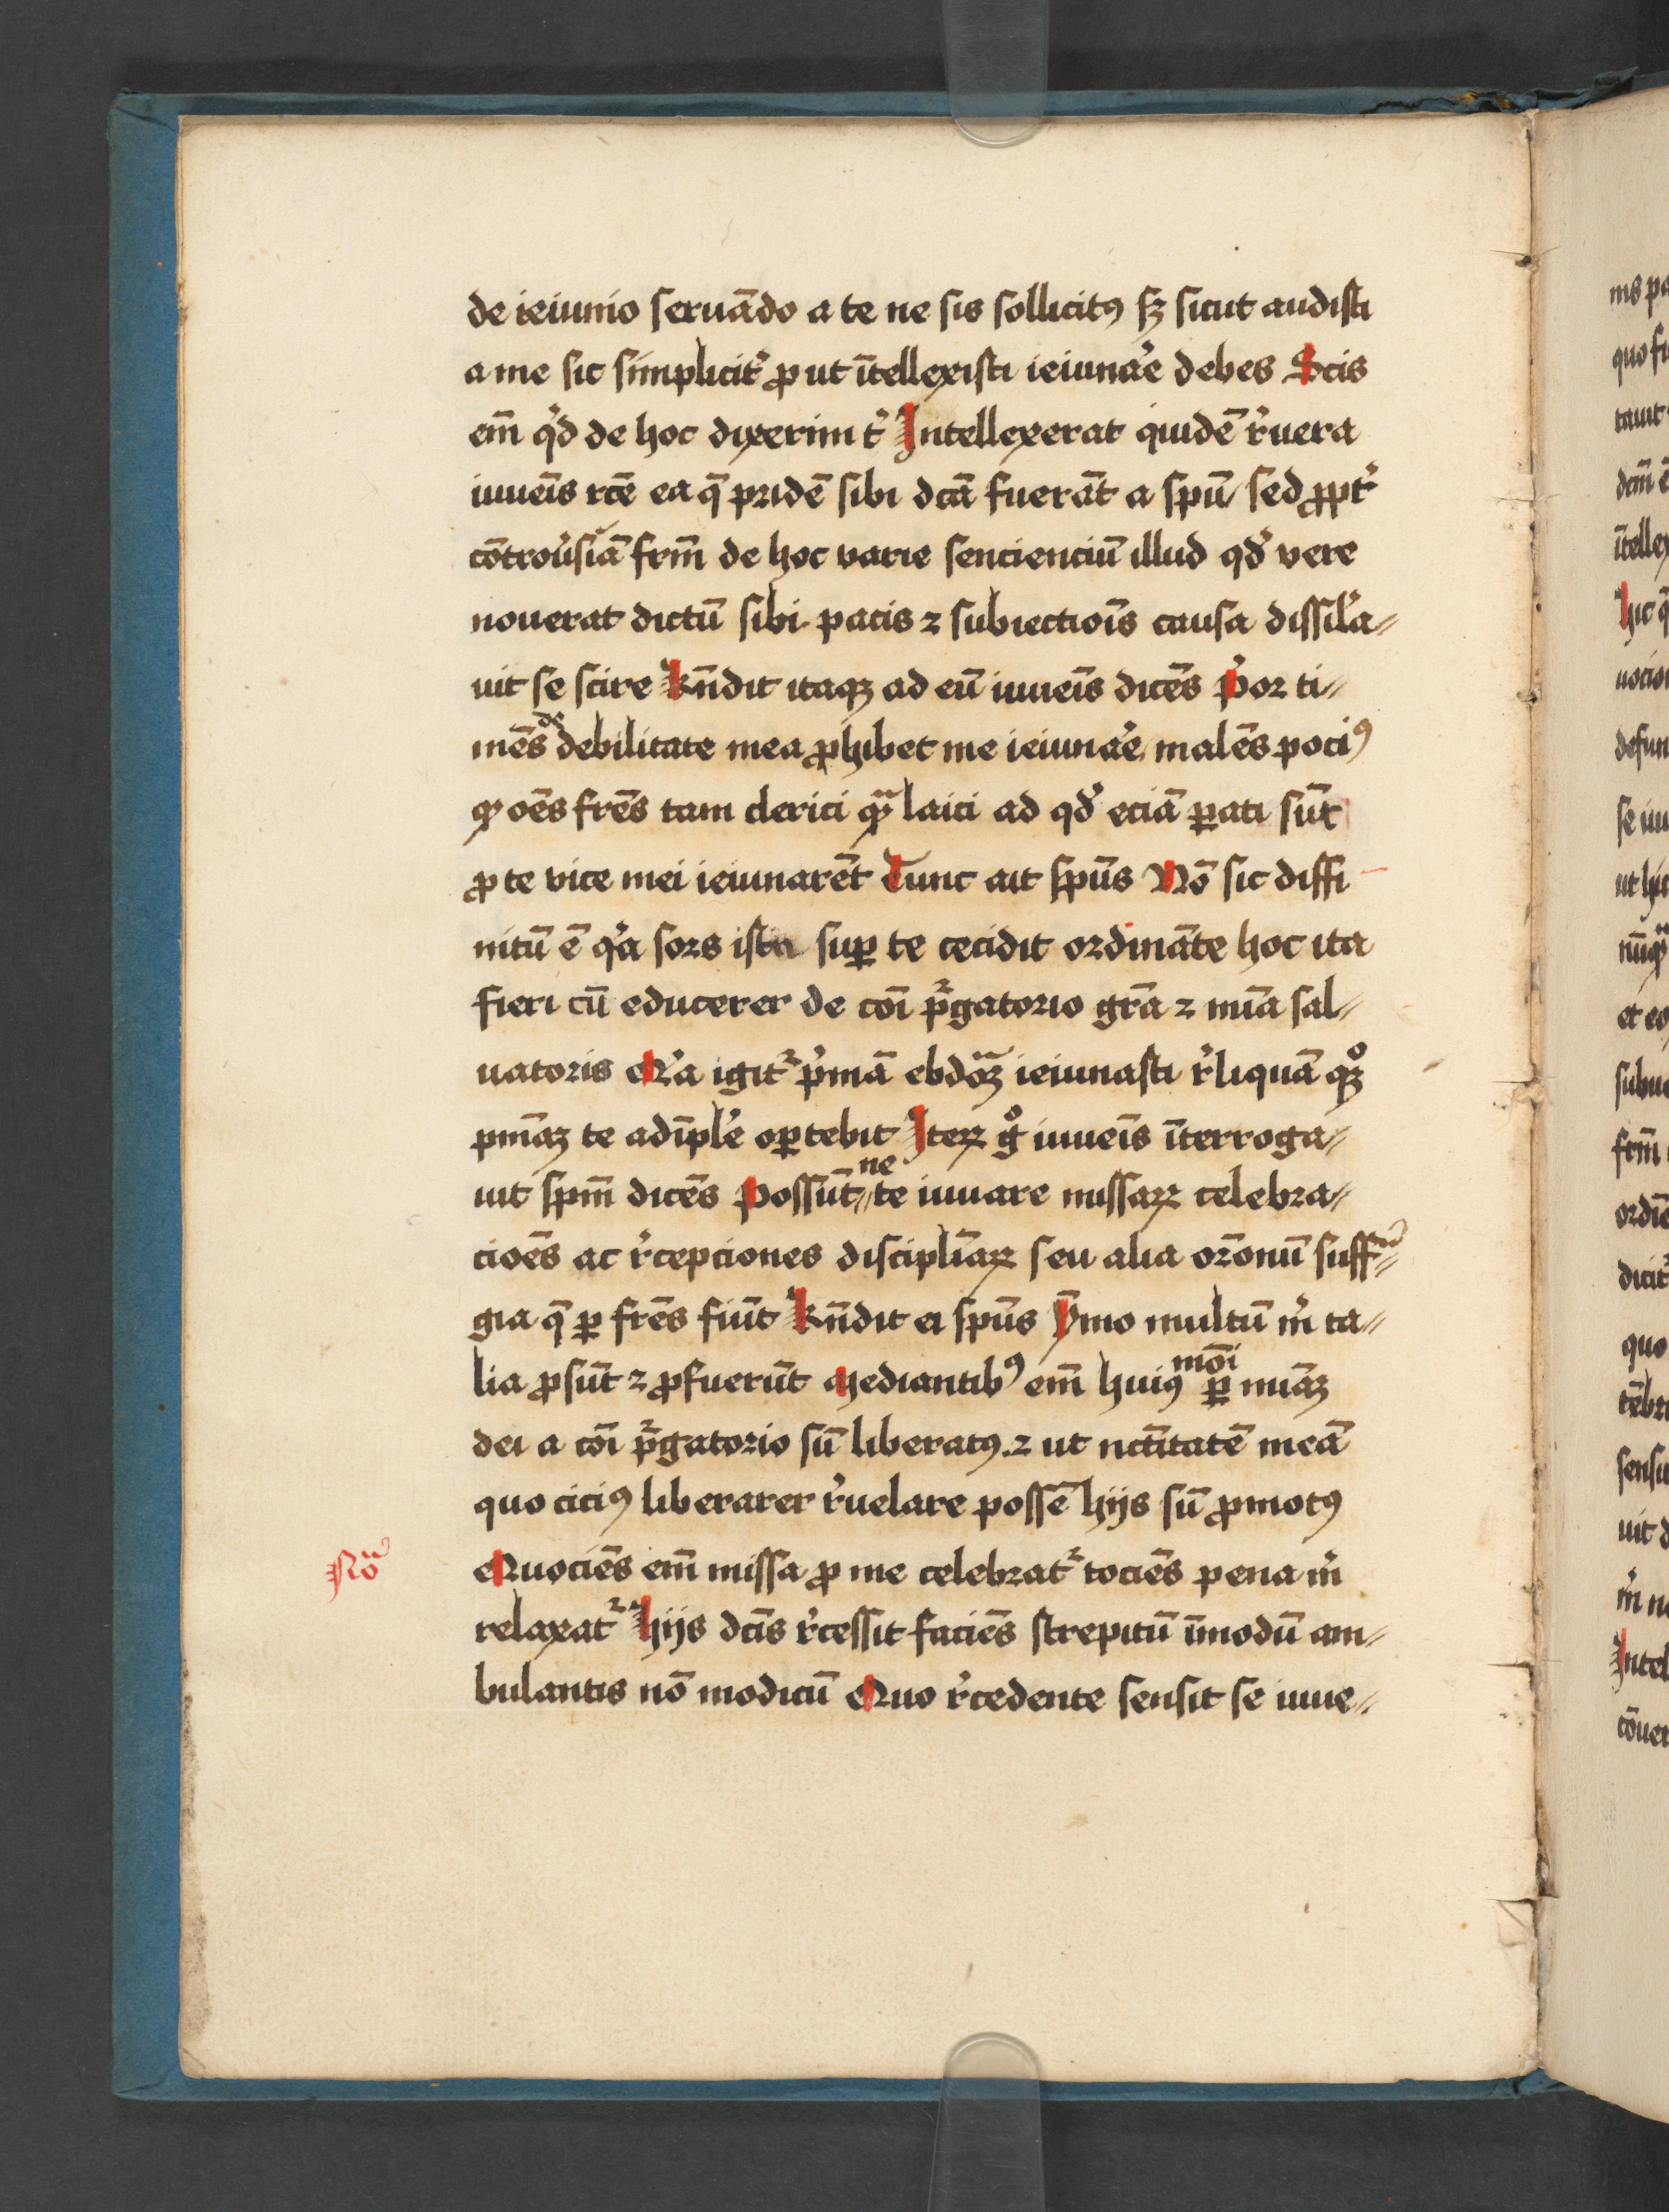 de ieiunio seruādo a te ne sis sollicitꝰ sꝫ sicut audisti
a me sic simplicit̓ ꝓ ut ītellexisti ieiunar̓e debes Scis
em̄ qͥd de hoc dixerim t̓ Intellexerat quidē r̓uera
iuuēis rc̄e ea q̄ pridē sibi dcā fuerāt a spū sed ꝓpt̓
cōtrou̓siā frm̄ de hoc varie senciencium illud qd̓ vere
nouerat dictū sibi pacis ⁊ subiectiōis causa dissil̓a⸗
uit se scire Rn̄dit itaqꝫ ad eū iuuēis dicēs P̓or ti⸗
mēs de debilitate mea ꝓhibet me ieiunar̓e malēs pociꝰ
ꝙ oēs frēs tam clerici qᷓꝫ laici ad qd̓ eciā ꝑati sūt
ꝓ te vice mei ieiunarēt Tunc ait spūs Nō sic diffi
nitū ē qͥa sors ista suꝑ te cecidit ordināte hoc ita
fieri cū educerer de cōi p̄gatorio gr̄a ⁊ mīa sal⸗
uatoris Qͥa igit᷑ p̓mā ebdōᷓꝫ ieiunasti r̓liquā qꝫͦ
pmāꝫ te adīpler̓e oꝑtebit Iteꝝ gͦ iuuēis īterroga⸗
uit spm̄ dicēs Possūt⸗ne te iuuare missaꝝ celebra⸗
ciōēs ac r̓cepciones disciplīaꝝ seu alia or̄onū suffᷓ⸗
gia q̄ ꝑ frēs fiūt Rn̄dit ei spūs Ȳmo multū m̓ ta⸗
lia ꝓsūt ⁊ ꝓfuerūt Mediantibꝰ em̄ huiꝰmōi ꝑ miāꝫ
dei a cōi p̄gatorio sū liberatꝰ ⁊ ut nc̄titatē meā
quo ciciꝰ liberarer r̓uelare possē hijs sū ꝓmotꝰ
Nōᷓ
Quociēs em̄ missa ꝓ me celebrat᷑ tociēs pena m̓
relaxat᷑ Hijs dcīs r̓cessit faciēs strepitū īmodū am⸗
bulantis nō modicū Quo r̓cedente sensit se iuue⸗